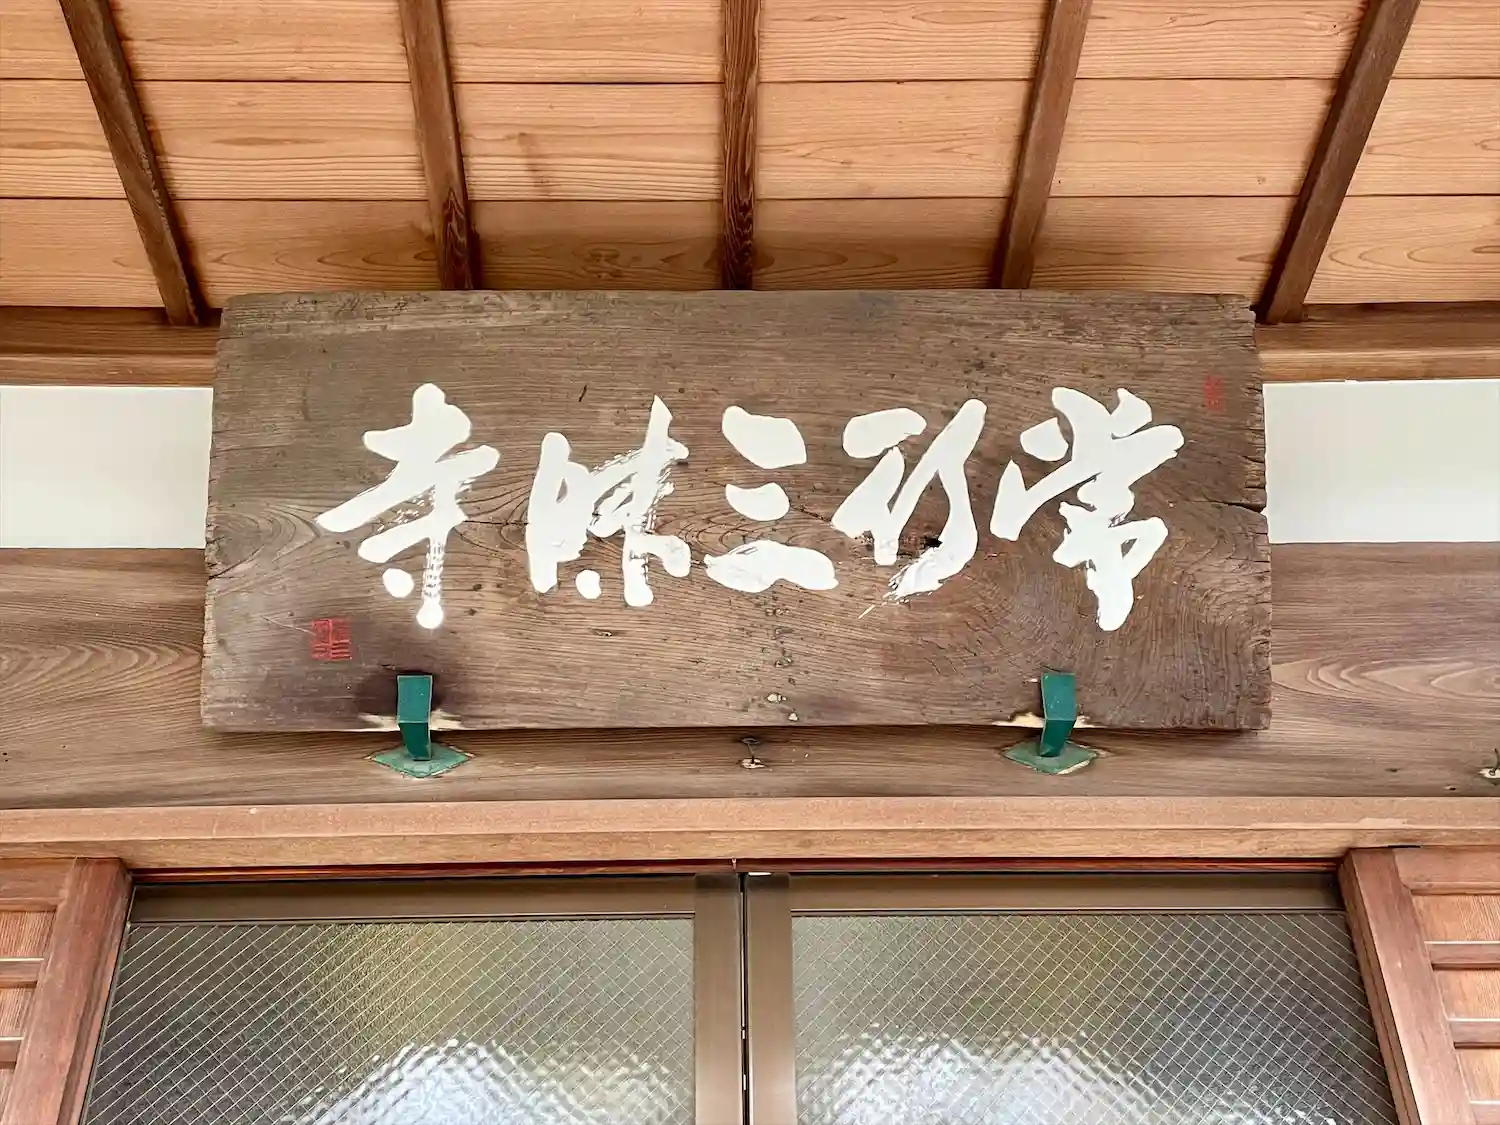 常行三昧寺